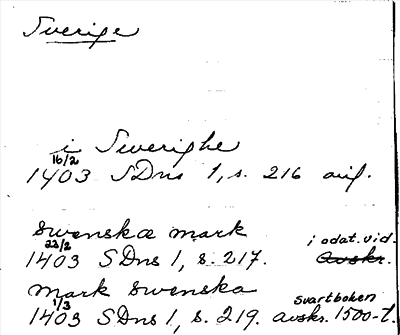 Sverige
i Swerighe
16/2
1403 SDns 1, s. 216 avs.
swenskæ mark
22/2 i odat. vid.
1403 SDns 1, s. 217. avskr.
mark swenska
1/3 svartboken
1403 SDns 1, s. 219. avskr. 1500-t.